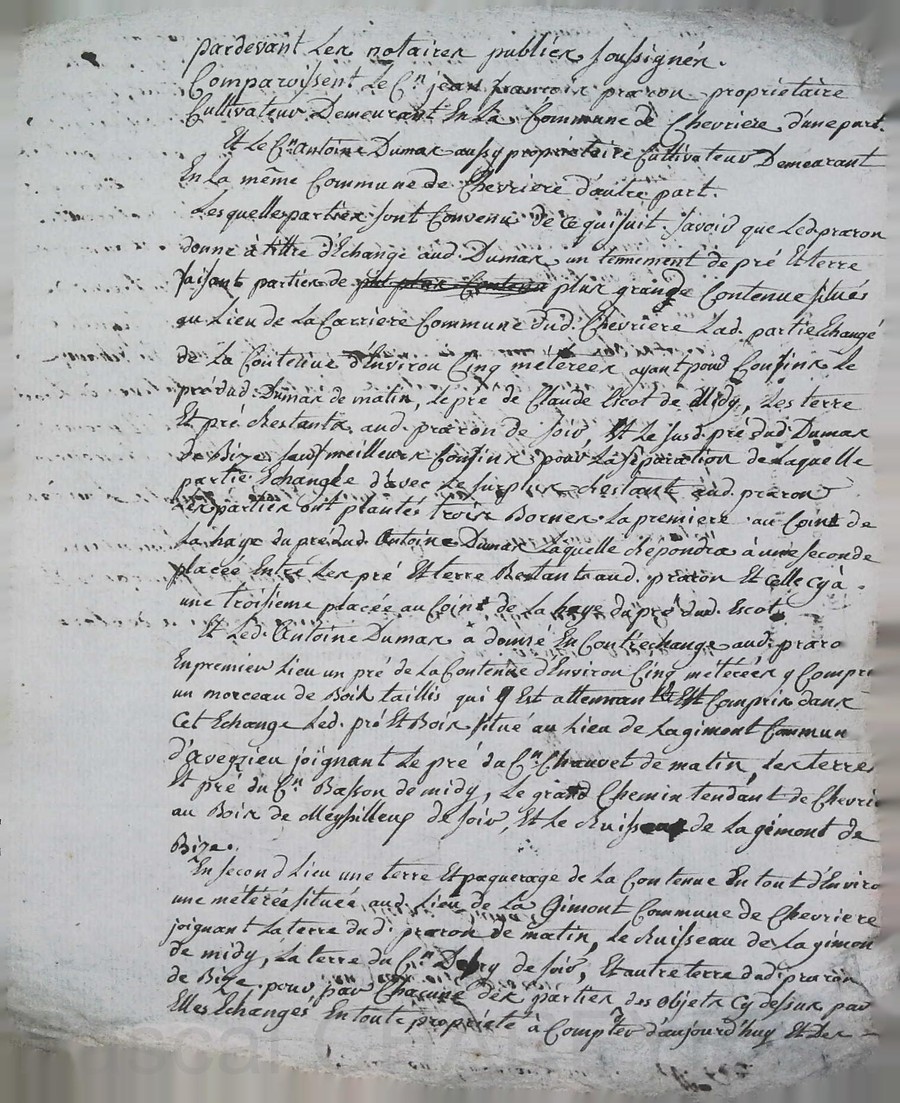 pardevant les notaires publics soussignés.
Comparoissent Le Cn. jean francois praron proprietaire
Cultivateur Demeurant En La Commune de Chevriere d'une part.
Et le Cn. antoine Dumas aussy propriétaire Cultivateur Demeurant
En La même Commune de Chevriere d'autre part.
Lesquelles parties sont Convenu de ce qui suit. savoir que Led. praron
donne à tittre d'Echange aud. Dumas un tennement de pré Et terre
faisant parties de plus grande Contenue situés
au Lieu de La Carriere Commune dud. Chevriere Lad. partie Echangé
de La Contenue d'Environ Cinq méterées ayant pour Confins Le
pré dud. Dumas de matin, Le pré de Claude Escot de Midy, Les terre
Et pré Restants aud. praron de soir, Et Le susd. pré dud Dumas
de Bize, sauf meilleurs Confins pour La séparation de Laquelle
partie Echangée d'avec Le surplus Restant aud. praron
Les parties ont plantés trois Bornes. La premiere au Coint de
La haye du pré dud. Antoine Dumas Laquelle Repondra à une seconde
placée Entre Les pré Et terre Restants aud. praron Et celle cy à
une troisieme placée au Coint de La haye du pré dud. Escot.
Et Led. Antoine Dumas à donné En Contrechange aud. praro
En premier Lieu un pré de La Contenue d'Environ Cinq méterées y Compri
un morceau de Bois taillis qui y Est attennant Et Compris dans
Cet Echange Led. pré Et Bois situé au Lieu de Lagimont Commun
d'avezieu joignant Le pré du Cn. Chauvet de matin, Les terres
Et pré du Cn. Basson de midy, Le grand Chemin tendant de Chevri
au Bois de de soir, Et Le Ruisseau de Lagimont de
Bize.
En second Lieu une terre Et paquerage de La Contenue En tout d'Enviro
une méterée située aud. Lieu de La Gimont Commune de Chevriere
joignant La terre dud. praron de matin, Le Ruisseau de Lagimon
de midy, La terre du Cn. de soir, Et autre terre dud. praron
de Bize. pour par Chacune des parties des objets Cy dessus par
Elles Echangés En toute propriété à Compter d'aujourd'huy Et Des